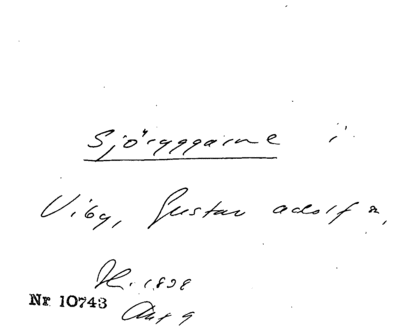 Sjöryggarne i
Viby, Gustav adolf sn,
H. 1898
Nr 10743